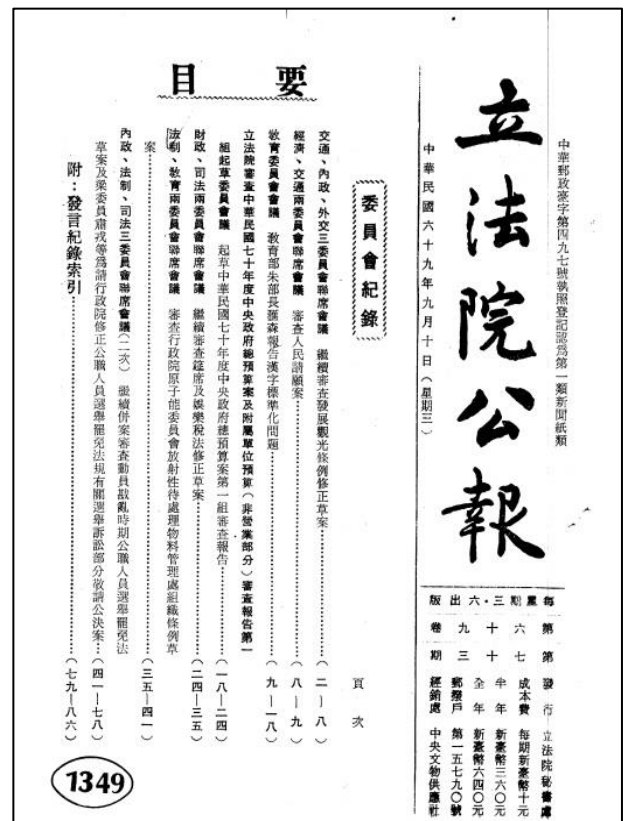 中華郵政臺字第四九七號執照登記認爲第一類新聞紙類
立法院公報
中華民國六十九年九月十日（星期三）
每星期三・六出版
第六十九卷
第七十三期
發行 立法院秘書處
成本費 每期新臺幣十元
半年 新臺幣三六〇元
全年 新臺幣六四〇元
郵撥戶 第一五七九〇號
經銷處 中央文物供應社
要目
委員會紀錄
頁次
交通、內政、外交三委員會聯席會議 繼續審查發展觀光條例修正草案……（二—八）
經濟、交通兩委員會聯席會議 審查人民請願案……（八—九）
教育委員會會議 教育部朱部長匯森報告漢字標準化問題……（九—一八）
立法院審查中華民國七十年度中央政府總預算案及附屬單位預算（非營業部分）審查報告第一
組起草委員會會議 起草中華民國七十年度中央政府總預算案第一組審查報告……（一八—二四）
財政、司法兩委員會聯席會議 繼續審查筵席及娛樂稅法修正草案……（二四—三五）
法制、教育兩委員會聯席會議 審查行政院原子能委員會放射性待處理物料管理處組織條例草
案……（三五—四一）
內政、法制、司法三委員會聯席會議（二次） 繼續併案審查動員戡亂時期公職人員選舉罷免法
草案及梁委員肅戎等爲請行政院修正公職人員選舉罷免法規有關選舉訴訟部分敬請公決案……（四一—七八）
附：發言紀錄索引……（七九—八六）
1349